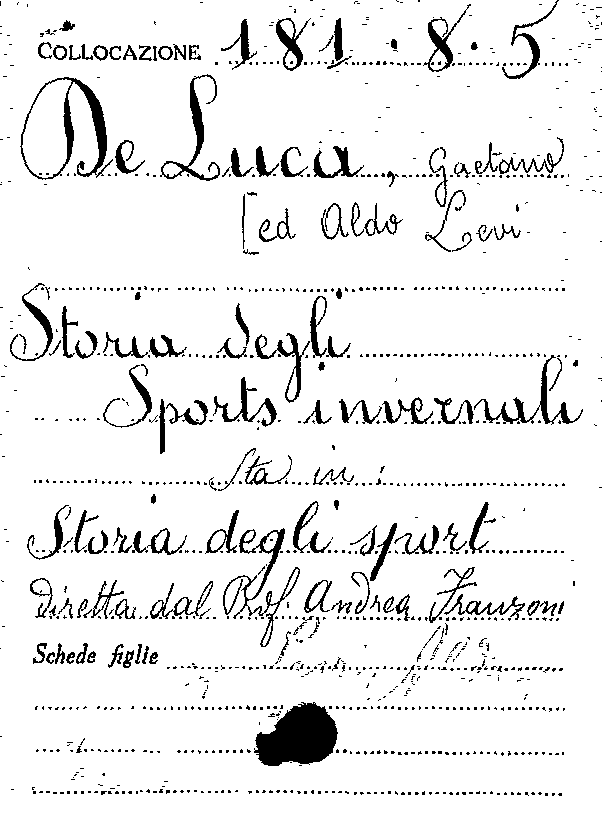 COLLOCAZIONE 181.8.5
De Luca, Gaetano
[ed Aldo Levi
Storia degli
Sports invernali
Sta in:
Storia degli sport
diretta dal Prof. Andrea Franzoni
Schede figlie